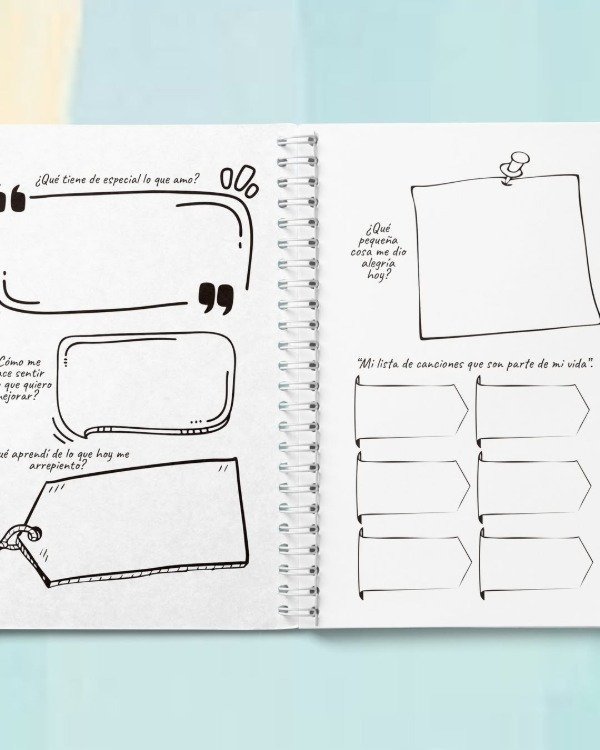 ¿Qué tiene de especial lo que amo?
Cómo me
ace sentir
o que quiero
mejorar?
ué aprendí de lo que hoy me
arrepiento?
¿Qué
pequeña
cosa me dio
alegría
hoy?
"Mi lista de canciones que son parte de mi vida".